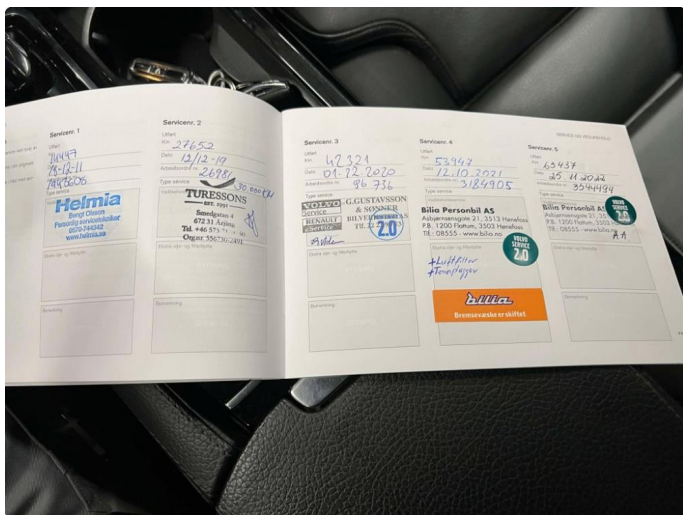 Servicenr. 1
Utført
Km
18-12-11
Type service
Helmia
Bengt Olsson
Personlig servicetekniker
0570-744342
www.helmia.se
Servicenr. 2
Utført
Km 27652
Dato 12/12-19
Arbeidsordre nr. 26981
Type service 30.000 KM
TURESSONS
EST. 1991
Smedgatan 4
672 31 Årjäng
Tel. +46 573
Org.nr 556730-2491
Ekstra olje- og filterbytte
Bemerkning
Servicenr. 3
Utført
Km 42321
Dato 01.12.2020
Arbeidsordre nr. 96 736
Type service
VOLVO
Service
RENAULT
Service
G.GUSTAVSSON
& SØNNER
2.0
Ekstra olje- og filterbytte
Bemerkning
Servicenr. 4
Utført
Km 53947
Dato 12.10.2021
Arbeidsordre nr. 3184905
Type service
Bilia Personbil AS
Asbjørnsensgate 21, 3513 Hønefoss
P.B. 1200 Flattum, 3503 Hønefoss
Tlf.: 08555 - www.bilia.no
VOLVO
SERVICE
2.0
Ekstra olje- og filterbytte
+Luftfilter
+Tennplugger
bilia
Bremsevæske er skiftet
SERVICE OG VEDLIKEHOLD
Servicenr. 5
Utført
Km 63437
Dato 25.11.2022
Arbeidsordre nr. 3544494
Type service
Bilia Personbil AS
Asbjørnsensgate 21, 35
P.B. 1200 Flattum, 3503
Tlf.: 08555 - www.bilia.no
VOLVO
SERVICE
2.0
Ekstra olje- og filterbytte
Bemerkning